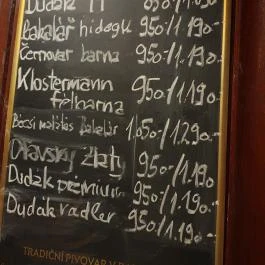 Dudák 11 850.-/1.050.-
Bakalář hidegk 950.-/1.190.-
Černovar barna 950.-/1.190.-
Klostermann félbarna 950.-/1.190.-
Bécsi malátás Bakalár 1.050.-/1.290.-
Otavský Zlatý 950.-/1.190.-
Dudák prémium 950.-/1.190.-
Dudák radler 950.-/1.190.-
TRADIČNÍ PIVOVAR V